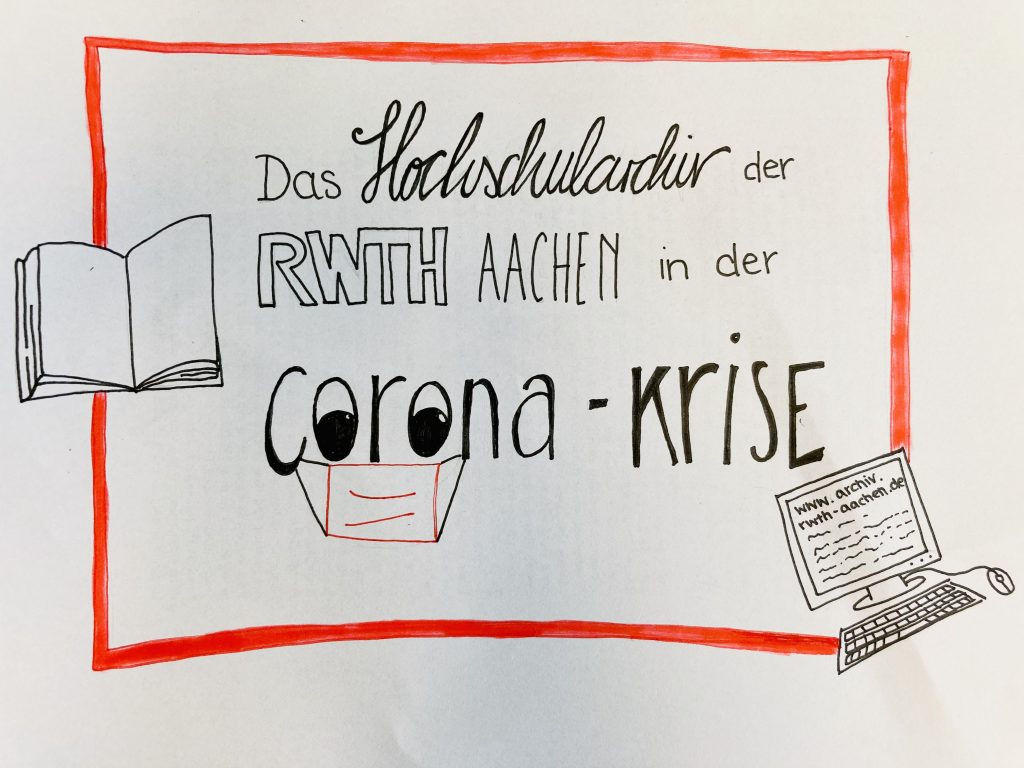 Das Hochschularchiv der
RWTH AACHEN in der
Corona-Krise
www.archiv.
rwth-aachen.de